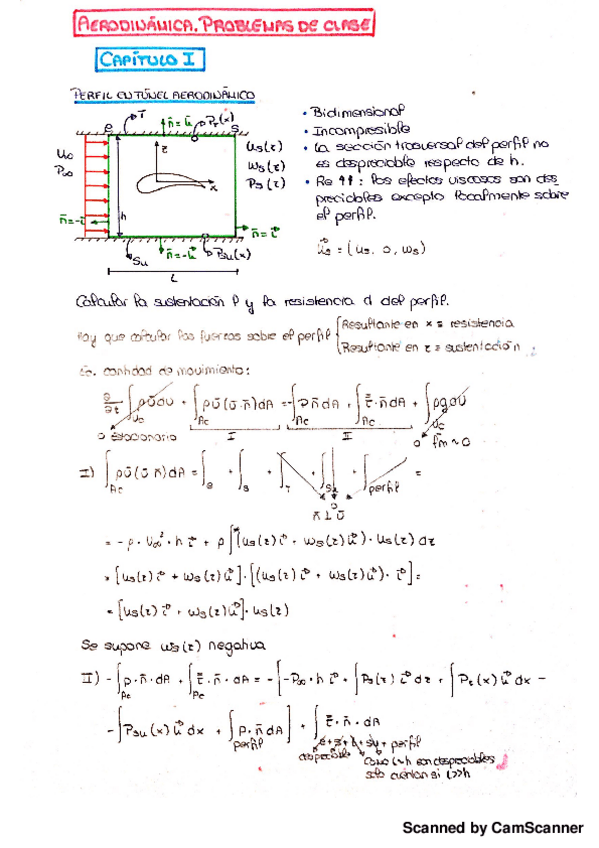 AERODINÁMICA. PROBLEMAS DE CLASE
CAPÍTULO I
PERFIL EN TÚNEL AERODINÁMICO
• Bidimensional
• Incompresible
• La sección trasversal del perfil no
es despreciable respecto de h.
• Re ↑↑ : los efectos viscosos son des
preciables excepto localmente sobre
el perfil.
u⃗s = (us, 0, ws)
e T n̄ = k̄ PT(x) s
U∞
P∞
z
x
us(z)
ws(z)
Ps(z)
h
n̄ = -ī
n̄ = ī
Su n̄ = -k̄ Psu(x)
L
Calcular la sustentación l y la resistencia d del perfil.
Hay que calcular las fuerzas sobre el perfil { Resultante en x ≡ resistencia
Resultante en z ≡ sustentación
Ec. cantidad de movimiento:
∂/∂t ∫Vc ρūdV + ∫Ac ρū(ū·n̄)dA = -∫Ac P n̄ dA + ∫Ac τ̄·n̄ dA + ∫Vc ρg dV
0 estacionario I II 0 f̄m ~ 0
I) ∫Ac ρū(ū·n̄)dA = ∫e + ∫s + ∫T + ∫Su + ∫perfil =
0
n̄ ⊥ ū
= -ρ · U∞² · h ī + ρ∫[us(z) ī + ws(z) k̄] · us(z) dz
* [us(z) ī + ws(z) k̄] · [(us(z) ī + ws(z) k̄) · ī] =
= [us(z) ī + ws(z) k̄] · us(z)
Se supone ws(z) negativa
II) -∫Ac p · n̄ · dA + ∫Ac τ̄ · n̄ · dA = -[-P∞ · h ī + ∫Ps(z) ī dz + ∫PT(x) k̄ dx -
-∫Psu(x) k̄ dx + ∫perfil P · n̄ dA] + ∫ τ̄ · n̄ · dA
e + s + t + su + perfil
despreciable
como l~h son despreciables
solo cuentan si l>>h
Scanned by CamScanner